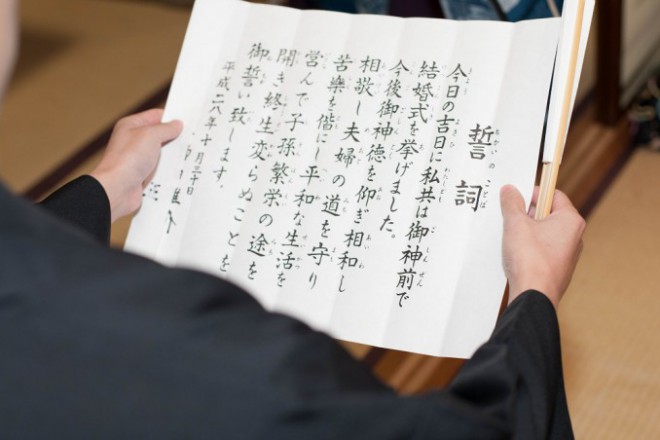 誓詞
今日の吉日に私共は御神前で
結婚式を挙げました。
今後御神徳を仰ぎ相和し
相敬し夫婦の道を守り
苦楽を偕にし平和な生活を
営んで子孫繁栄の途を
開き終生変らぬことを
御誓い致します。
平成二八年十月三十日